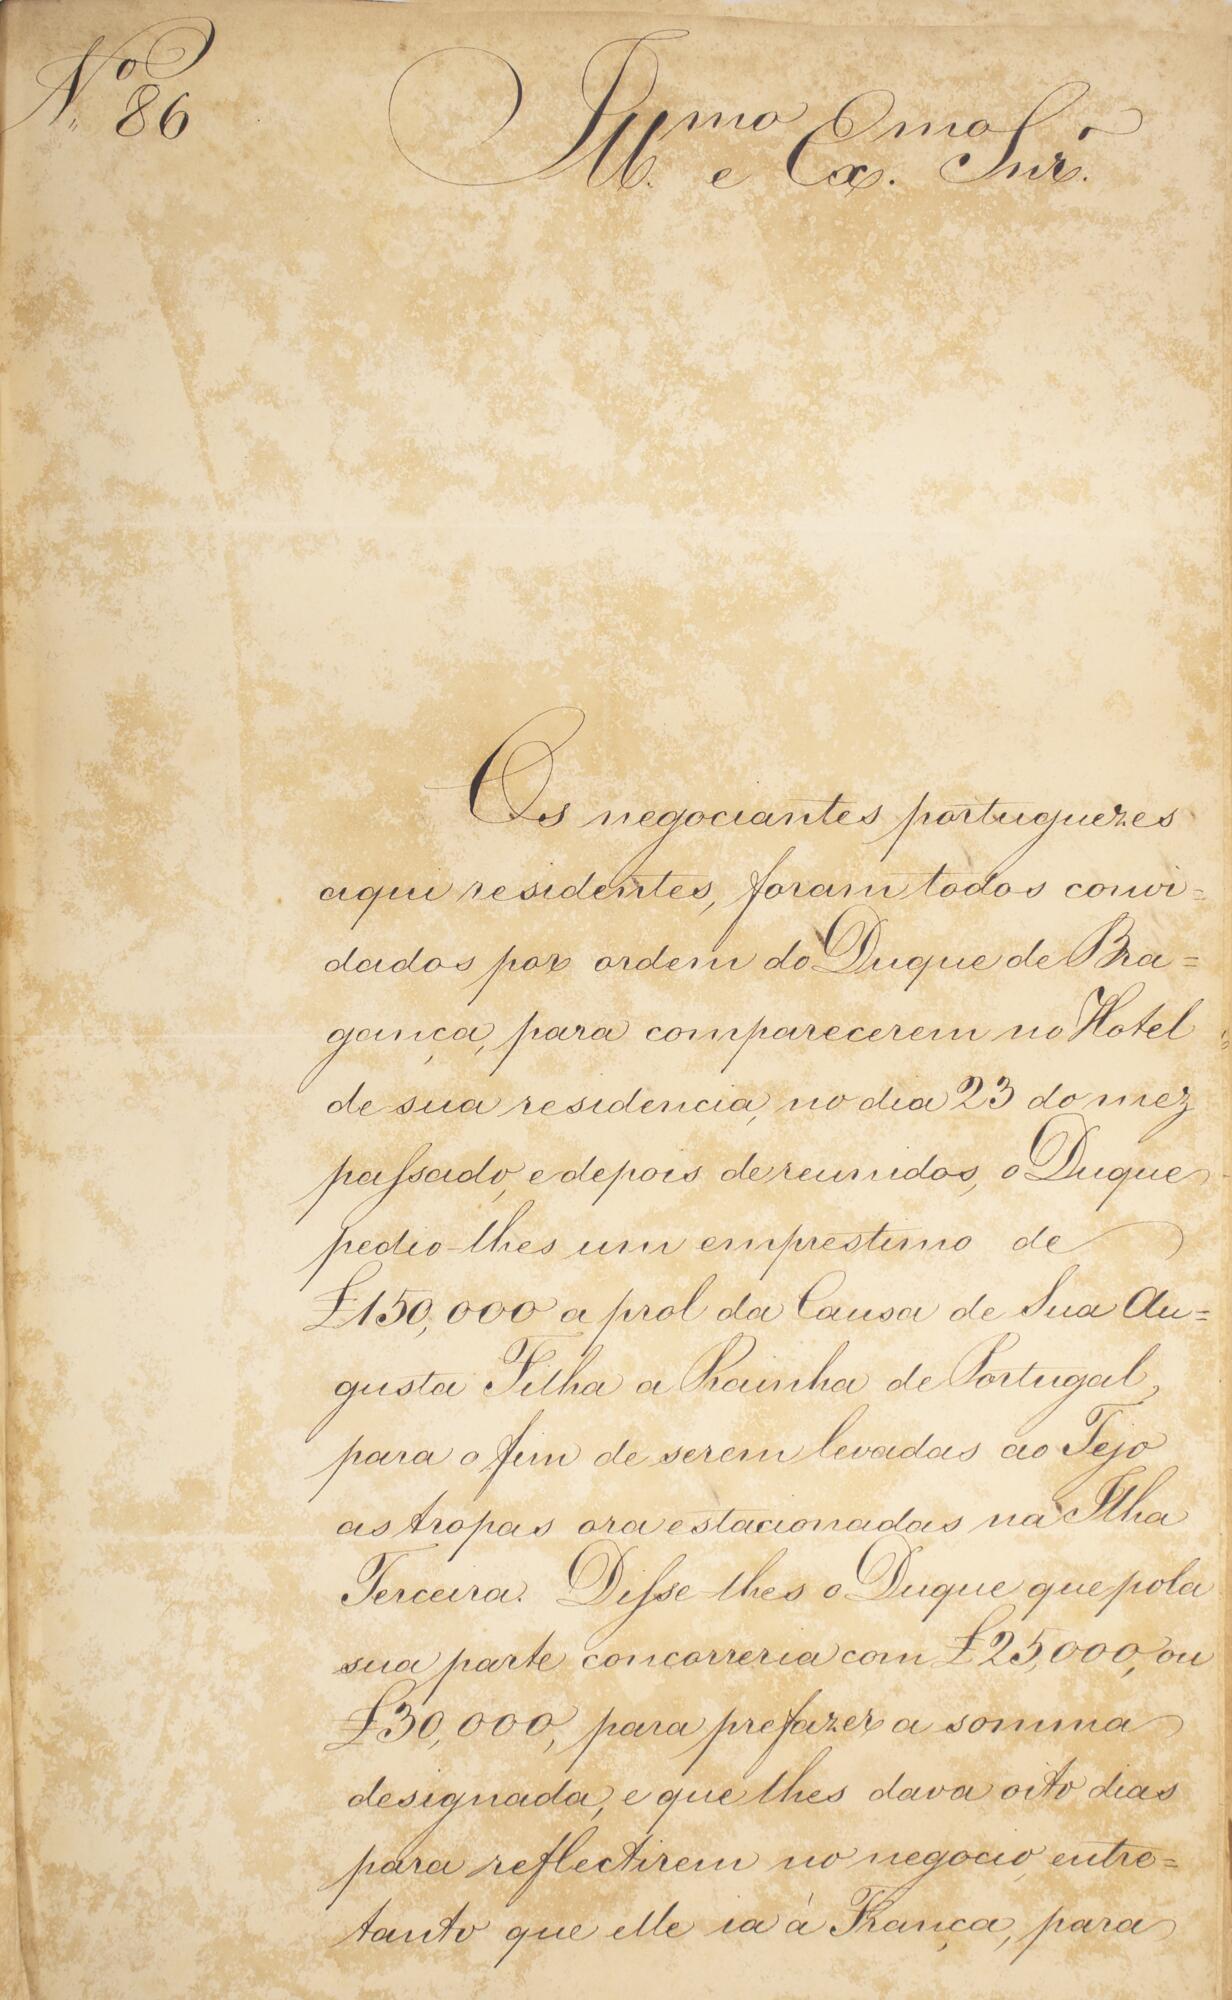 Nº 86
Illmo e Exmo Snr.
Os negociantes portuguezes
aqui residentes, foram todos convi=
dados por ordem do Duque de Bra=
gança, para comparecerem no Hotel
de sua residencia, no dia 23 do mez
passado, e depois de reunidos, o Duque
pedio-lhes um emprestimo de
£150,000 a prol da Causa de Sua Au=
gusta Filha a Rainha de Portugal,
para o fim de serem levadas ao Tejo
as tropas ora estacionadas na Ilha
Terceira. Disse-lhes o Duque que pola
sua parte concorreria com £25,000, ou
£30,000, para prefazer a somma
designada, e que lhes dava oito dias
para reflectirem no negocio, entre=
tanto que elle ia à França, para